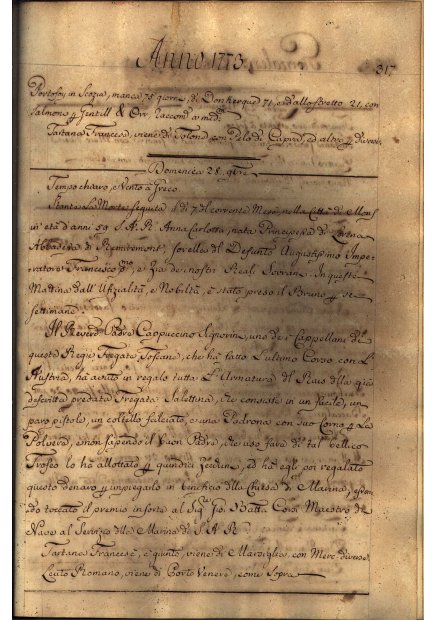 Anno 1773.
317
Portosoy in Scozia, manca 75 giorni, di Donkerque 71, e dallo stretto 21, con
Salmone p Gentill & Orr, Raccom. a med.
Tartana Francese, viene di Tolone con Pelo di Capra, ed altro p diversi.
Domenica 28. 9bre
Tempo chiaro, e Vento a Greco.
Stante La Morte seguita li di 7. del corrente Mese, nella Città di Mons
in età d'anni 59 S. A. R. Anna Carlotta, nata Principessa di Lorena
Abbadessa di Remiremont, sorella del Defunto Augustissimo Impe-
ratore Francesco Pmo, e Zia dei nostri Reali Sovrani. In questa
Mattina dall' Ufizialità, e Nobiltà, è stato preso il Bruno p sei
settimane.
Il Reverdo Padre Cappuccino Signorini, uno dei Cappellani di
questa Regia Fregata Toscana, che ha fatto l'ultimo Corso con L'
Austria, ha avuto in regalo tutta L'Armatura del Rais della già
descritta predata Fregata Salettina, che consiste in un fucile, un
paro pistole, un coltello falcato, e una Padrona con suo Corno p La
Polvere, e non sapendo il buon Padre, che uso fare di tal bellico
Trofeo lo ha allottato p quindici zecchini, ed ha egli poi regalato
questo denaro p impiegarlo in benefizio della Chiesa di Marina, essen-
do toccato il premio in sorte al Sigr Gio. Batta Corsi Maestro di
Nave al Servizio della Marina di S. A. R.
Tartana Francese, è giunta, viene di Marsiglia, con Merci diverse
Leuto Romano, viene di Porto Venere, come sopra